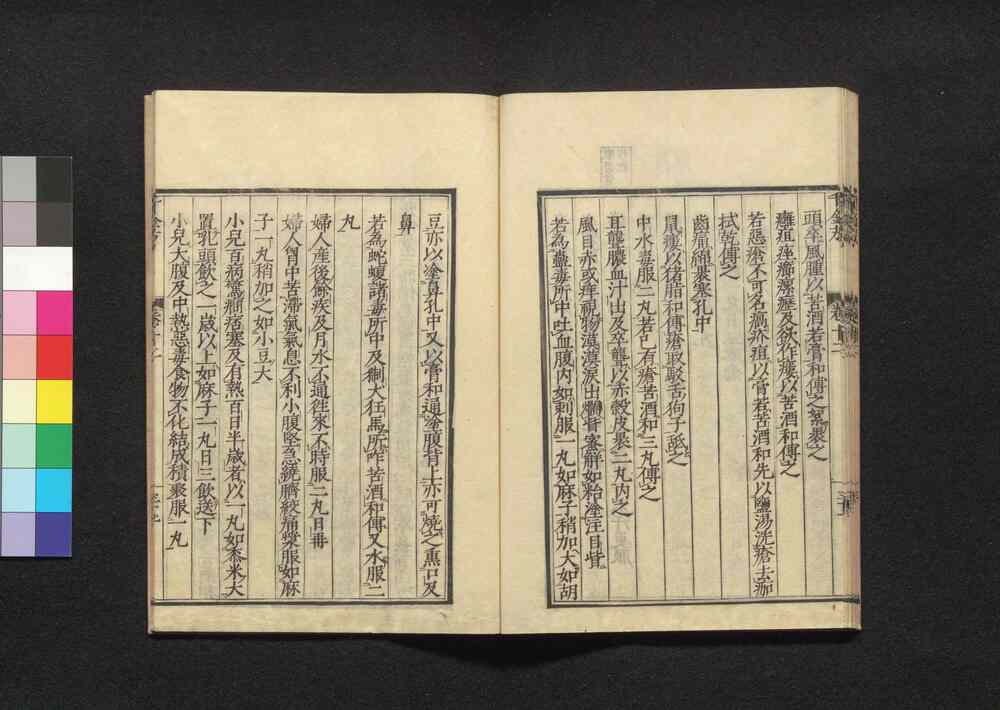 頭卒風腫以苦酒若膏和傅之絮裹之
癰疽痤癤瘰癧及欲作瘻以苦酒和傅之
若惡瘡不可名瘑疥疽以膏若苦酒和先以鹽湯洗瘡去痂
拭乾傅之
齒痛綿裹塞孔中
鼠瘻以猪脂和傅瘡取駮舌狗子舐之
中水毒服二丸若已有瘡苦酒和三丸傅之
耳聾膿血汁出及卒聾以赤穀皮裹二丸内之
風目赤或痒視物漠漠淚出爛眥蜜解如飴塗注目眥
若為蠱毒所中吐血腹内如刺服一丸如麻子稍加大如胡
豆亦以塗鼻孔中又以膏和通塗腹背上亦可燒之熏口及
鼻
若為蛇蝮諸毒所中及猘犬狂馬所咋苦酒和傅又水服二
丸
婦人産後餘疾及月水不通徃來不時服二丸日再
婦人胷中苦滯氣氣息不利小腹堅急繞臍絞痛漿服如麻
子一丸稍加之如小豆大
小兒百病驚癎痞塞及有熱百日半歲者以一丸如黍米大
置乳頭飲之一歲以上如麻子一丸日三飲送下
小兒大腹及中熱惡毒食物不化結成積聚服一丸